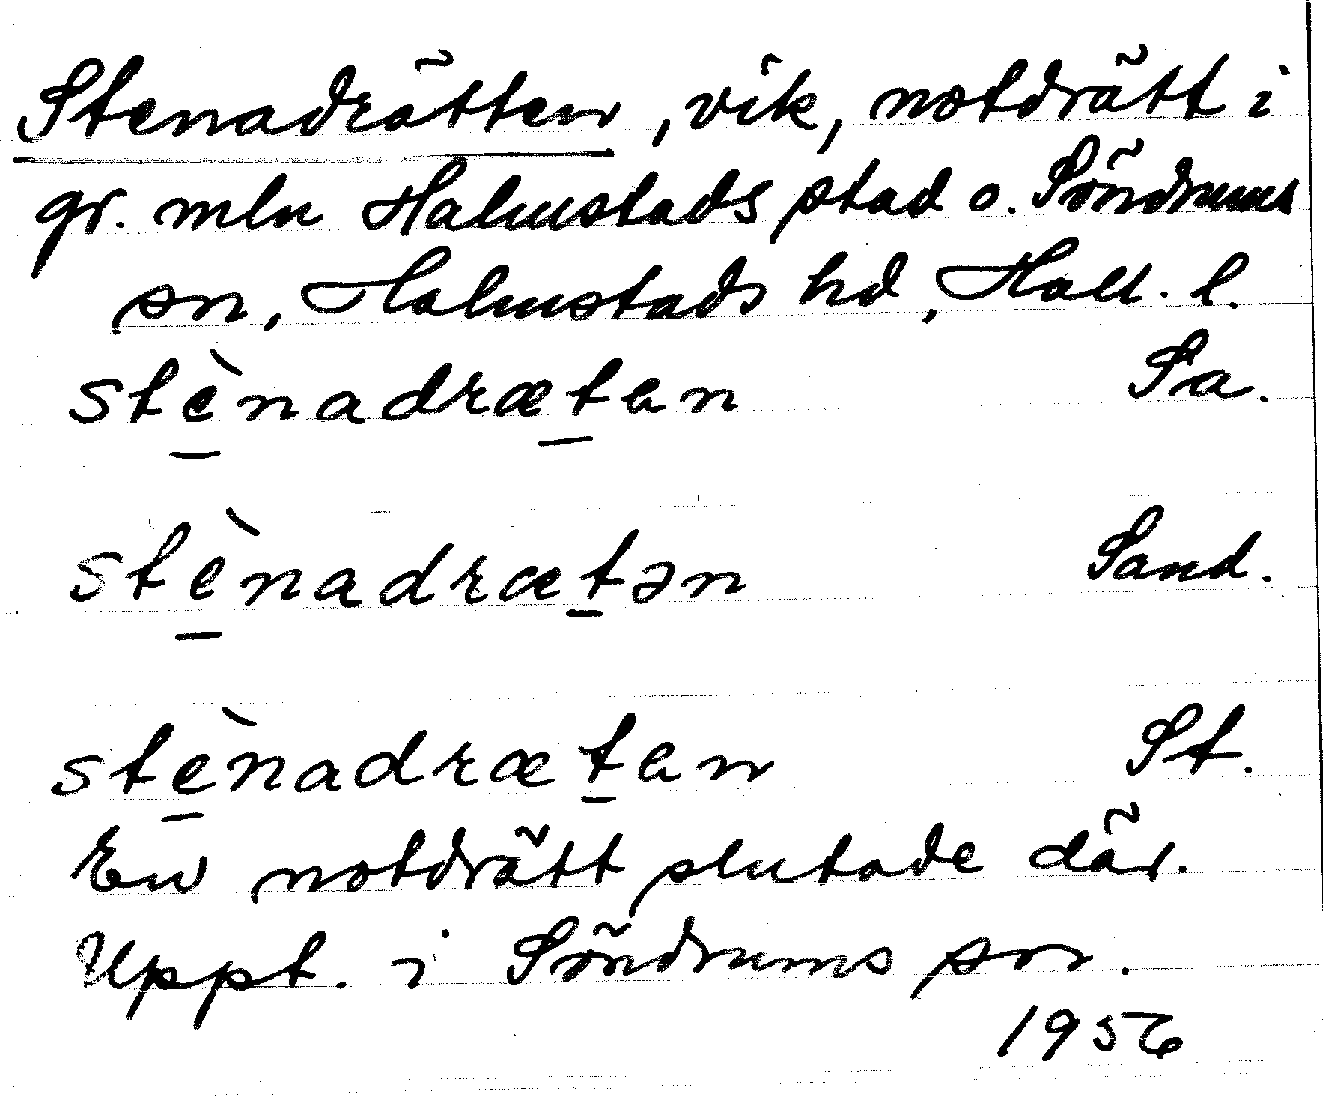 Stenadrätten, vik, notdrätt i
gr. mln Halmstads stad o. Söndrums
sn, Halmstads hd, Hall. l.
stènadrætan Sa.
stènadrætən Sand.
stènadrætan St.
En notdrätt slutade där.
Uppt. i Söndrums sn.
1956